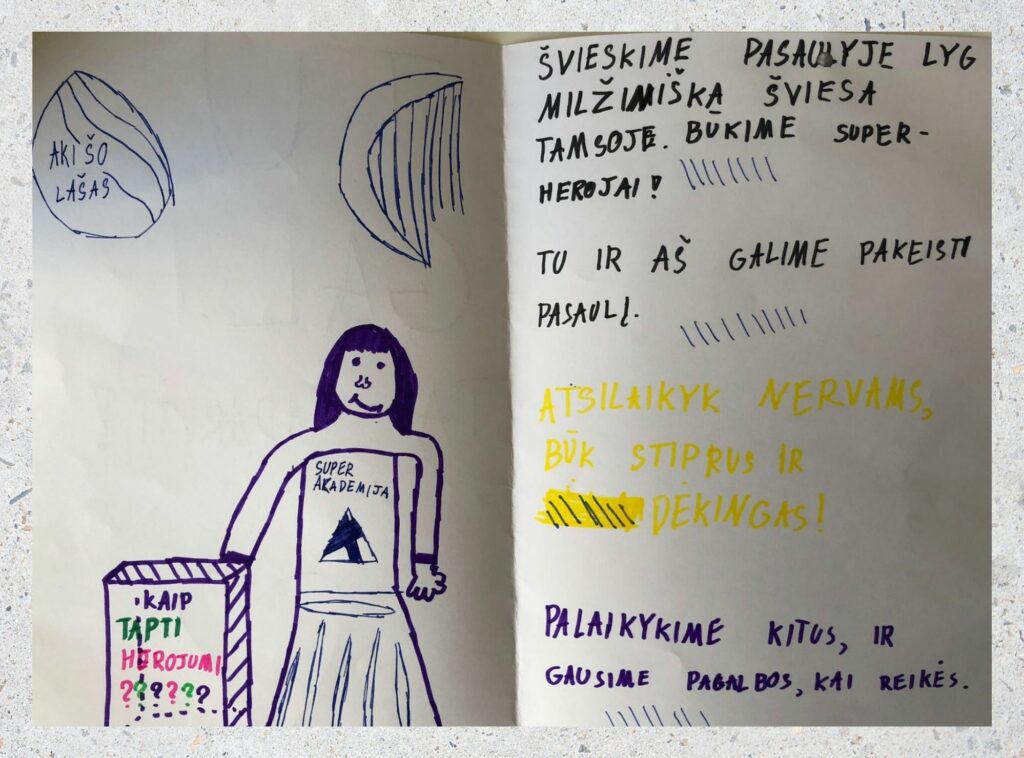 AKI ŠO
LAŠAS
SUPER
AKADEMIJA
KAIP
TAPTI
HEROJUMI
??????
ŠVIESKIME PASAULYJE LYG
MILŽIMIŠKA ŠVIESA
TAMSOJE. BŪKIME SUPER-
HEROJAI!
TU IR AŠ GALIME PAKEISTI
PASAULĮ.
ATSILAIKYK NERVAMS,
BŪK STIPRUS IR
DĖKINGAS!
PALAIKYKIME KITUS, IR
GAUSIME PAGALBOS, KAI REIKĖS.